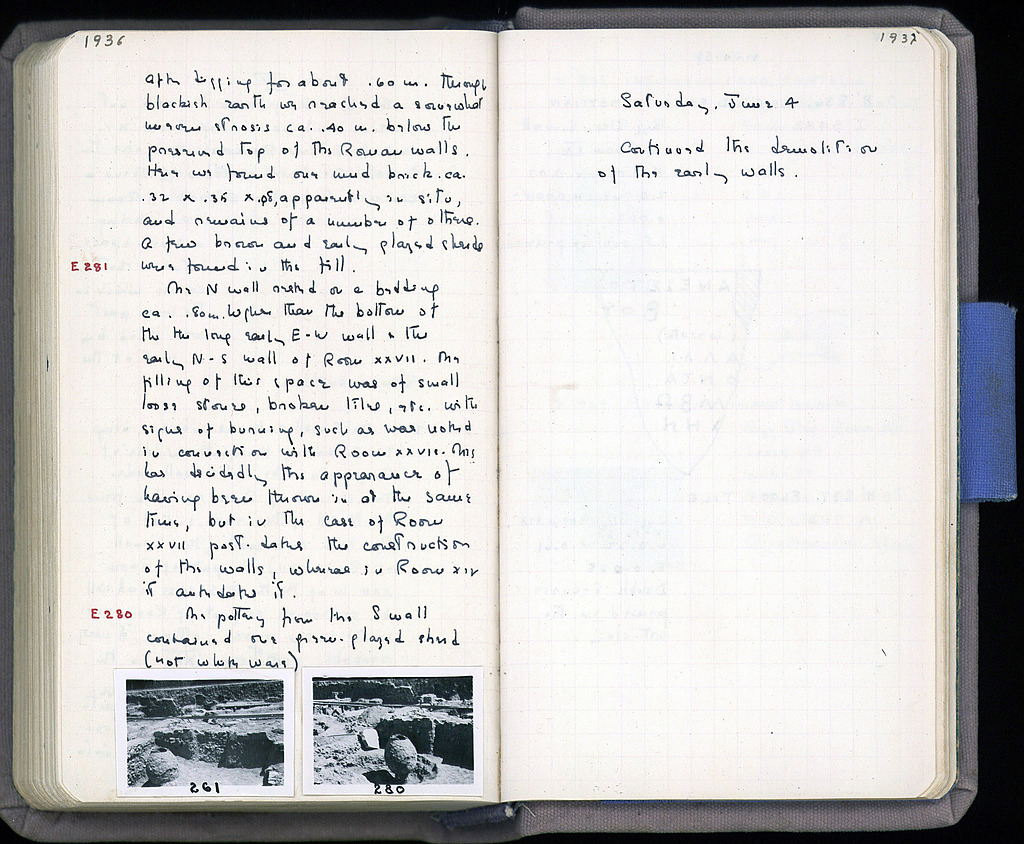 1936
after digging for about .60 m. through
blackish earth we reached a somewhat
uneven strosis ca. .40 m. below the
preserved top of the Roman walls.
Here we found one mud brick ca.
.32 x .35 x .08, apparently in situ,
and remains of a number of others.
A few brown and early glazed sherds
E 281 were found in the fill.
The N wall rested on a bedding
ca. .80m. higher than the bottom of
the the long early E-W wall & the
early N-S wall of Room XXVII. The
filling of this space was of small
loose stones, broken tiles, etc. with
signs of burning, such as was noted
in connection with Room XXVII. This
has decidedly the appearance of
having been thrown in at the same
time, but in the case of Room
XXVII post-dates the construction
of the walls, whereas in Room XIV
it antedates it.
E 280 The pottery from the S wall
contained one green-glazed sherd
(not white ware)
261
280
1937
Saturday, June 4
Continued the demolition
of the early walls.